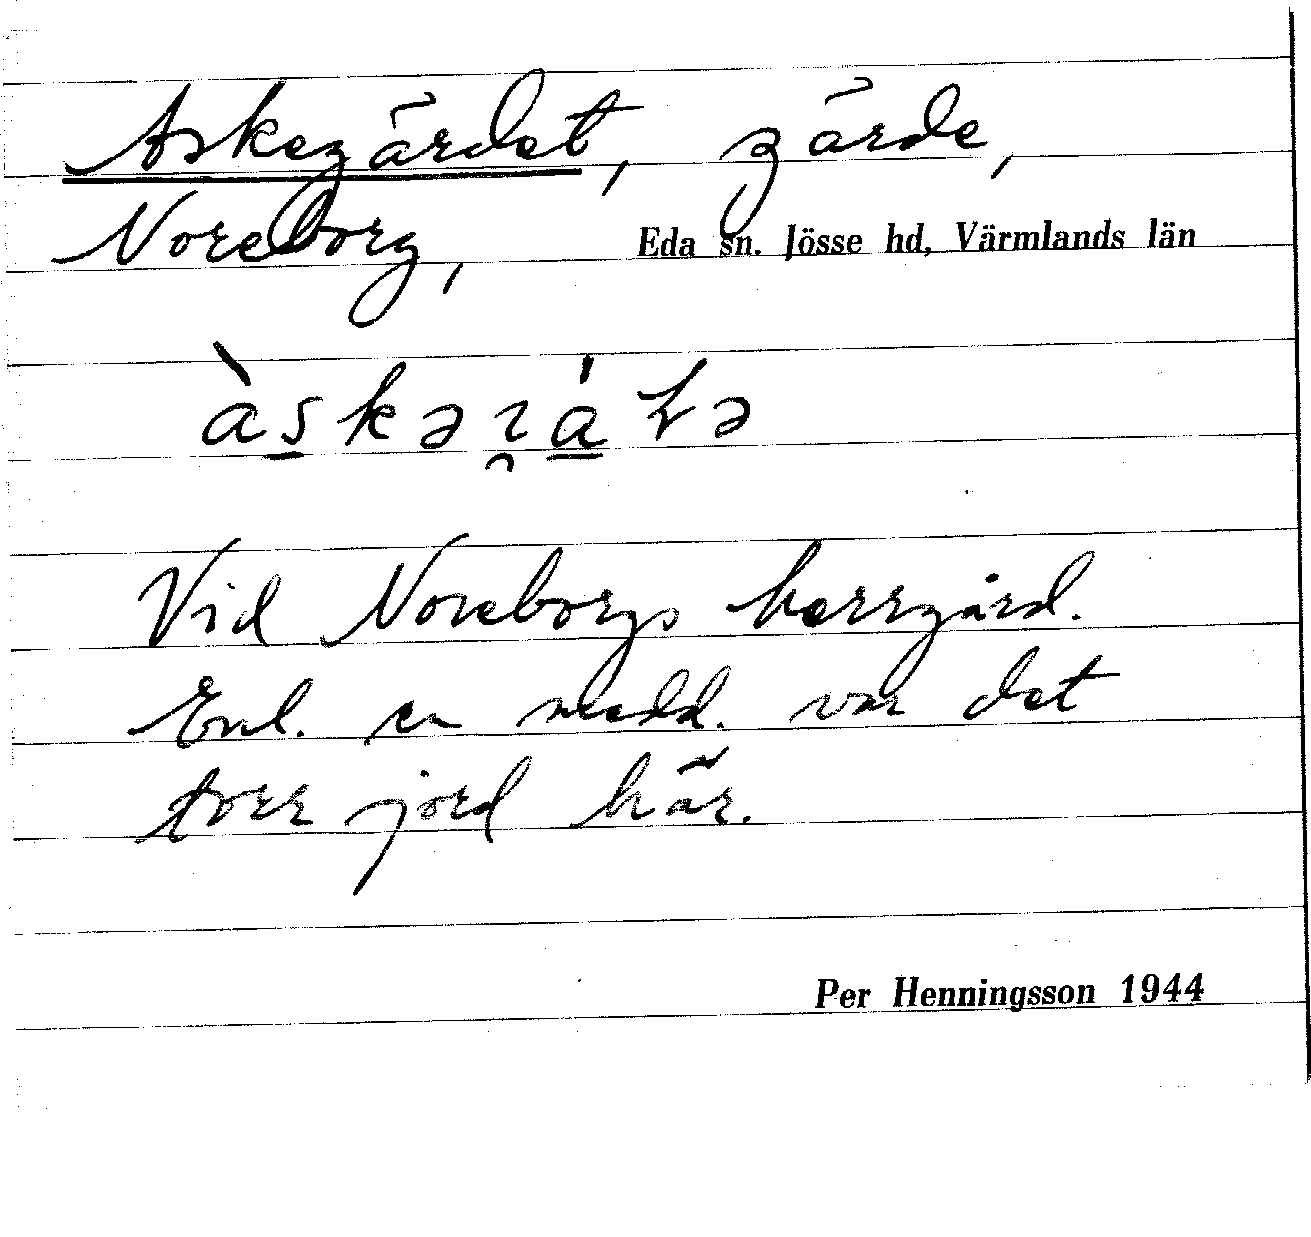 Askegärdet, gärde,
Noreborg, Eda sn. Jösse hd, Värmlands län
Vid Noreborgs herrgård.
Enl. en medd. var det
torr jord här.
Per Henningsson 1944